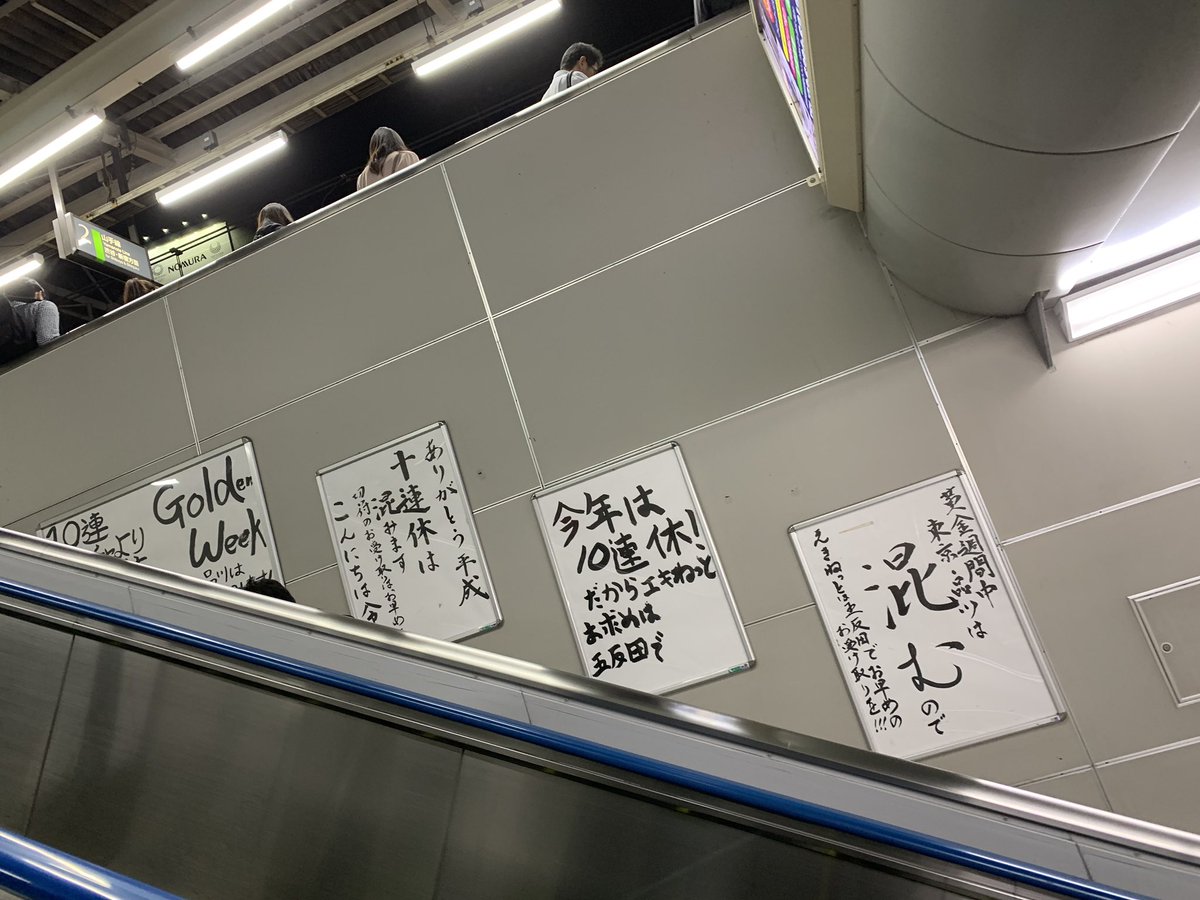 2
山手線
NOMURA
Golden
Week
10連
より
品川は
ありがとう平成
十連休は
混みます
切符のお受け取りはお早め
こんにちは
今年は
10連休!
だからエキねっと
お求めは
五反田で
黄金週間中
東京・品川は
混むので
えきねっとは五反田でお早めの
お受け取りを!!!